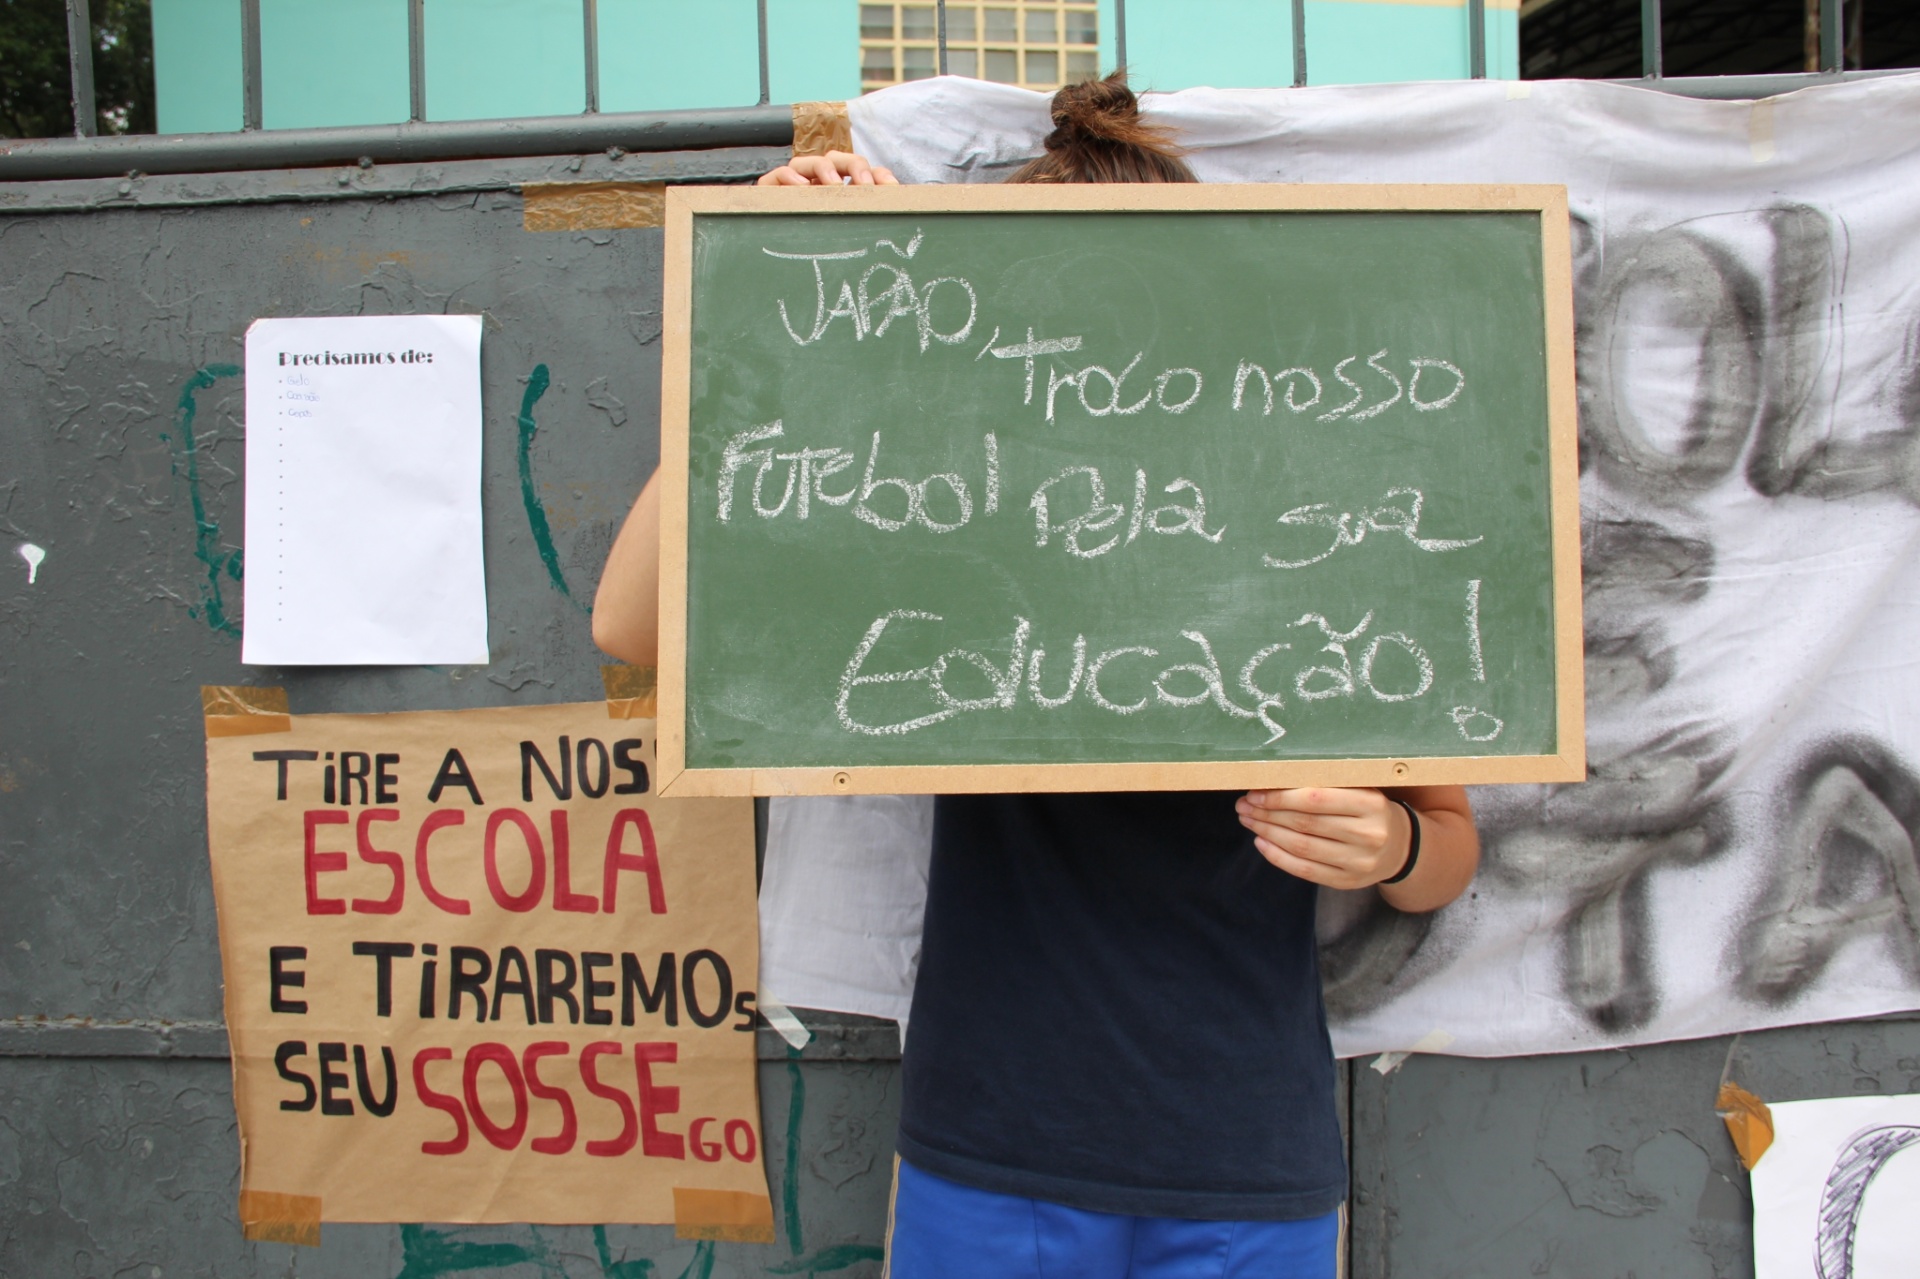 JAPÃO,
Troco nosso
Futebol Pela sua
Educação!
Precisamos de:
Gelo
TiRE A NOS
ESCOLA
E TiRAREMOS
SEU SOSSEGO
OL
TA